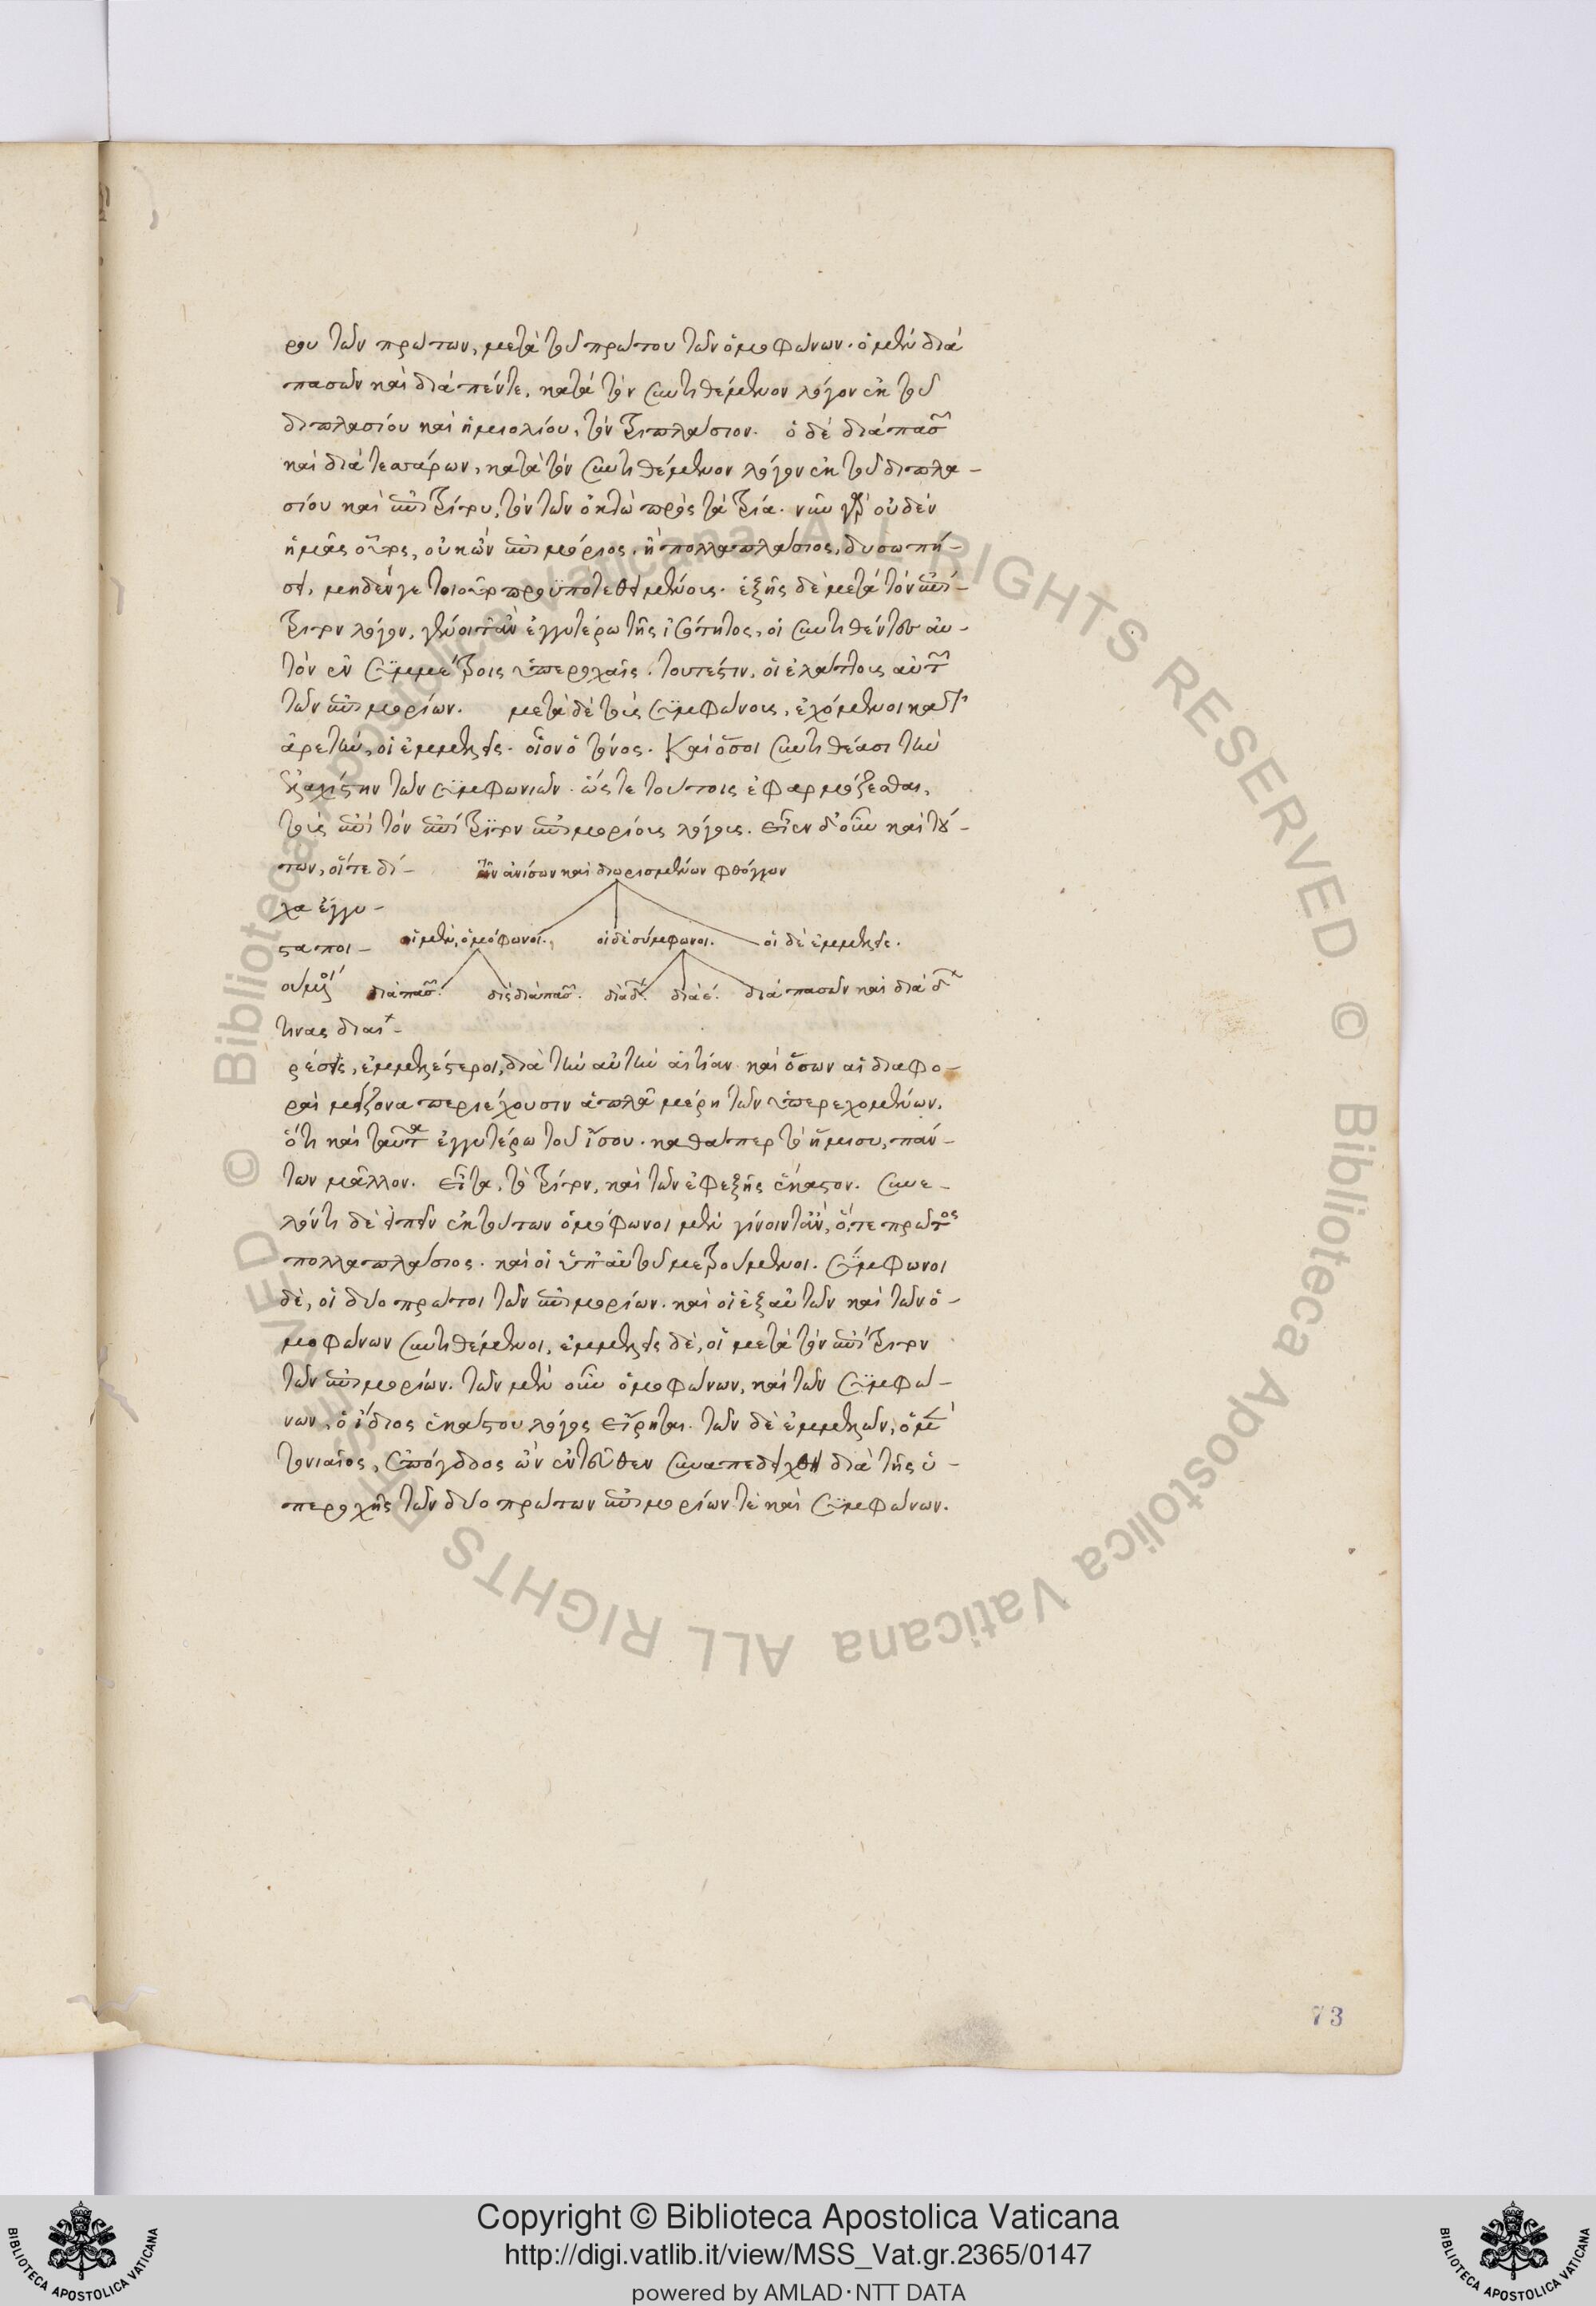 ρου τῶν πρώτων, μετὰ τοῦ πρώτου τῶν ὁμοφώνων. ὁ μὲν διὰ
πασῶν καὶ διὰ πέντε, κατὰ τὸν συντιθέμενον λόγον ἐκ τοῦ
διπλασίου καὶ ἡμιολίου, τὸν τριπλάσιον. ὁ δὲ διὰ πασῶν
καὶ διὰ τεσσάρων, κατὰ τὸν συντιθέμενον λόγον ἐκ τοῦ διπλα-
σίου καὶ ἐπιτρίτου, τὸν τῶν ὀκτὼ πρὸς τὰ τρία. νῦν γὰρ οὐδὲν
ἡμᾶς οὗτος, οὐκ ὢν ἐπιμόριος, ἢ πολλαπλάσιος, δυσωπή-
σει, μηδέν γε τοιοῦτο προϋποτεθειμένους. ἑξῆς δὲ μετὰ τὸν ἐπί-
τριτον λόγον, γένοιντ' ἂν ἐγγυτέρω τῆς ἰσότητος, οἱ συντιθέντες αὐ-
τὸν ἐν συμμέτροις ὑπεροχαῖς. τουτέστιν, οἱ ἐλάττους αὐτοῦ
τῶν ἐπιμορίων. μετὰ δὲ τοὺς συμφώνους, ἐχόμενοι κατ'
ἀρετὴν, οἱ ἐμμελεῖς. οἷον ὁ τόνος. Καὶ ὅσοι συντιθέασι τὴν
ἐλαχίστην τῶν συμφωνιῶν. ὥστε τούτοις ἐφαρμόζεσθαι,
τοὺς ὑπὸ τὸν ἐπίτριτον ἐπιμορίους λόγους. εἶεν δ' οὖν καὶ τού-
των, οἵ τε δί-
χα ἔγγι-
στα ποι-
ούμενοι
τινας διαι-
τῶν ἀνίσων καὶ διωρισμένων φθόγγων
οἱ μὲν, ὁμόφωνοι.
οἱ δὲ σύμφωνοι.
οἱ δὲ ἐμμελεῖς.
διὰ πασῶν.
δὶς διὰ πασῶν.
διὰ δ.
διὰ ε.
διὰ πασῶν καὶ διὰ δ
ρέσεις, ἐμμελέστεροι, διὰ τὴν αὐτὴν αἰτίαν καὶ ὅσων αἱ διαφο-
ραὶ μείζονα περιέχουσιν ἁπλᾶ μέρη τῶν ὑπερεχομένων,
ὅτι καὶ ταῦτα ἐγγυτέρω τοῦ ἴσου. καθάπερ τὸ ἥμισυ, πάν-
των μᾶλλον. εἶτα, τὸ τρίτον, καὶ τῶν ἐφεξῆς ἕκαστον. Συνε-
λόντι δὲ εἰπεῖν ἐκ τούτων ὁμόφωνοι μὲν γίνοιντ' ἂν, ὅ τε πρῶτος
πολλαπλάσιος. καὶ οἱ ὑπ' αὐτοῦ μετρούμενοι. Σύμφωνοι
δὲ, οἱ δύο πρῶτοι τῶν ἐπιμορίων. καὶ οἱ ἐξ αὐτῶν καὶ τῶν ὁ-
μοφώνων συντιθέμενοι, ἐμμελεῖς δὲ, οἱ μετὰ τὸν ἐπίτριτον
τῶν ἐπιμορίων. τῶν μὲν οὖν ὁμοφώνων, καὶ τῶν συμφώ-
νων, ὁ ἴδιος ἑκάστου λόγος εἴρηται. τῶν δὲ ἐμμελῶν, ὁ μὲν
τονιαῖος, ἐπόγδοος ὢν ἐντεῦθεν συναπεδείχθη διὰ τῆς ὑ-
περοχῆς τῶν δύο πρώτων ἐπιμορίων τὲ καὶ συμφώνων.
73
Copyright © Biblioteca Apostolica Vaticana
http://digi.vatlib.it/view/MSS_Vat.gr.2365/0147
powered by AMLAD·NTT DATA